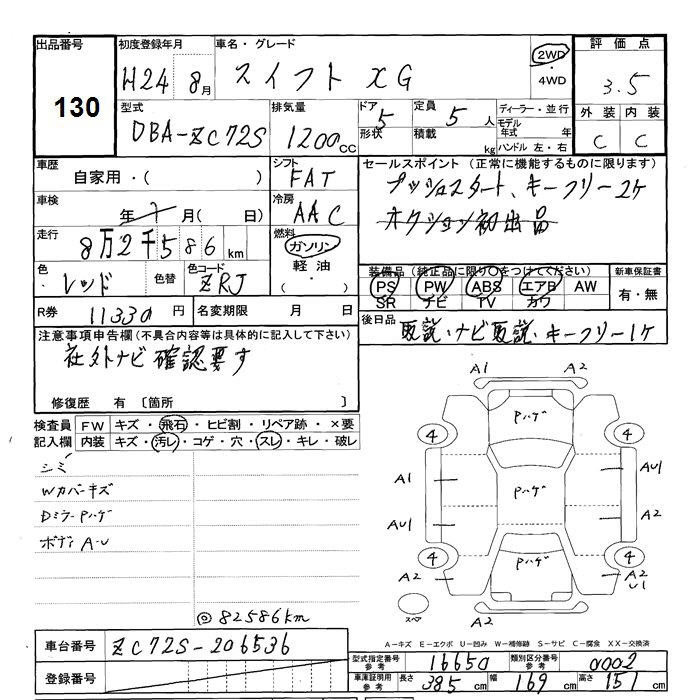 出品番号 初度登録年月 車名・グレード 2WD ・ 4WD 評価点
130 H24 8月 スイフト XG 3.5
型式 排気量 ドア 定員 ディーラー・並行 外装 内装
DBA-ZC72S 1200cc 5 5人 モデル年式 年 C C
形状 積載 kg ハンドル 左・右
車歴 シフト セールスポイント (正常に機能するものに限ります)
自家用・( ) FAT プッシュスタート、キーフリー2ケ
車検 冷房 オクション初出品
年 月( 日) AAC
走行 燃料
8万2千586km ガソリン
色 色替 色コード 軽油 装備品 (純正品に限り○をつけてください) 新車保証書
レッド ZRJ ( ・ ) PS PW ABS エアB AW 有・無
SR ナビ TV カワ
R券 11330円 名変期限 月 日 後日品
取説・ナビ取説・キーフリー1ケ
注意事項申告欄 (不具合内容等は具体的に記入して下さい)
社外ナビ確認要す
修復歴 有 〔箇所 〕
検査員 FW キズ・飛石・ヒビ割・リペア跡・×要
記入欄 内装 キズ・汚レ・コゲ・穴・スレ・キレ・破レ
シミ
Wカバーキズ
Dミラー Pハゲ
ボディ A-U
◎82586km
A1 A2
Pハゲ
4 4
A1 AU1
Pハゲ
AU1 A2
4 4
Pハゲ
A2 A2
U1
スペア A2
A-キズ E-エクボ U-凹み W-補修跡 S-サビ C-腐食 XX-交換済
車台番号 ZC72S-206536
登録番号
型式指定番号 参考 16650 類別区分番号 参考 0002
車庫証明用 参考 長さ 385cm 幅 169cm 高さ 151cm